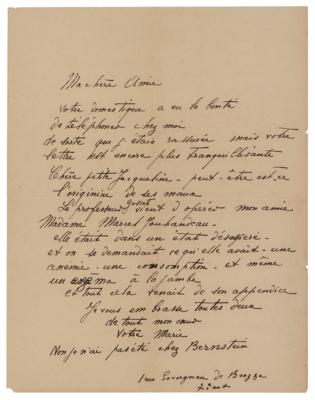 Ma chère Amie
votre domestique a eu la bonté
de téléphoner chez moi
de sorte que j'étais rassurée mais votre
lettre est encore plus tranquillisante
Chère petite Jacqueline - peut-être est-ce
l'originine de ses maux
Le professeur Gosset vient d'opérer mon amie
Madame Marcel Jouhandeau -
elle était dans un état désespéré
et on se demandait ce qu'elle avait - une
anémie - une consomption - et même
un ma à la jambe
et tout cela venait de son appendice
Je vous embrasse toutes deux
de tout mon cœur
votre Marie
Non je n'ai pas été chez Bernstein
1 rue Savorgnan de Brazza